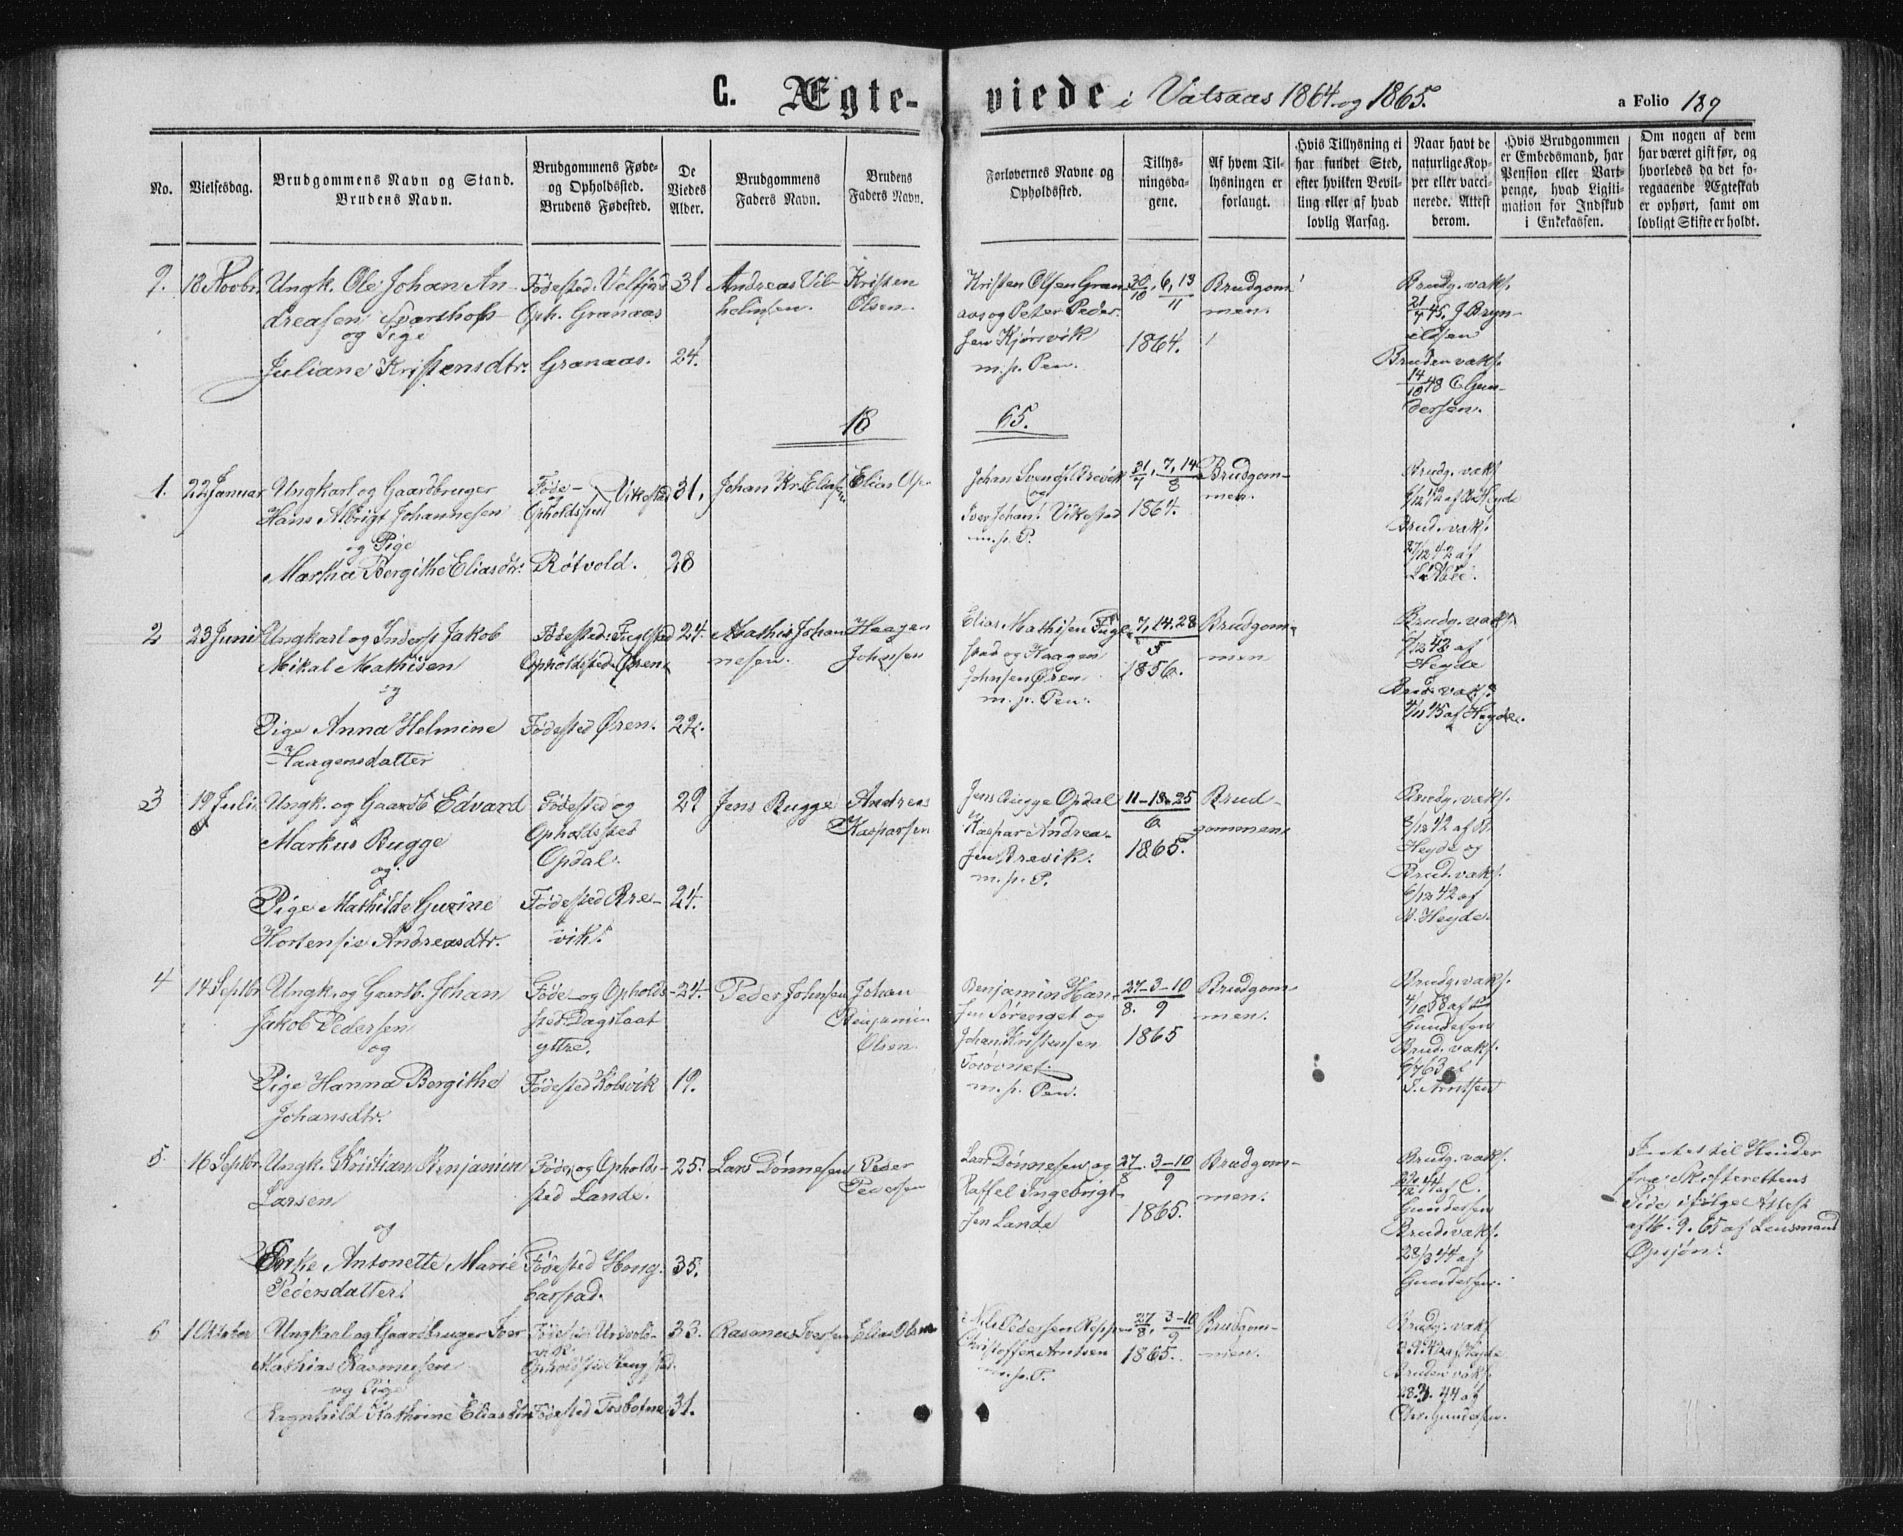 C. Ægte-
viede i Vatsaas 1864 og 1865.
a Folio 189
No.
Vielsesdag.
Brudgommens Navn og Stand.
Brudens Navn.
Brudgommens Føde-
og Opholdssted.
Brudens Fødested.
De
Viedes
Alder.
Brudgommens
Faders Navn.
Brudens
Faders Navn.
Forlovernes Navne og
Opholdssted.
Tillys-
ningsda-
gene.
Af hvem Til-
lysningen er
forlangt.
Hvis Tillysning ei
har fundet Sted,
efter hvilken Bevil-
ling eller af hvad
lovlig Aarsag.
Naar havt de
naturlige Kop-
per eller vacci-
nerede. Attest
derom.
Hvis Brudgommen
er Embedsmand, har
Pension eller Vart-
penge, hvad Ligiti-
mation for Indskud
i Enkekassen.
Om nogen af dem
har været gift før, og
hvorledes da det fo-
regaaende Ægteskab
er ophørt, samt om
lovligt Skifte er holdt.
9. 13 Novbr.
Ungk. Ole Johan An-
dreasen Svarthop
og Pige
Juliane Kristensdtr.
Fødested: Velfjord
Oph. Granaas
Granaas.
31
24.
Andreas Vil-
helmsen.
Kristen
Olsen.
Kristen Olsen Gran-
aas og Peter Peder-
sen Kjørsvik
m. p. Pen.
30/10, 6, 13/11
1864.
Brudgom-
men.
Brudg. vaks.
21/7 45. J. Bryn-
ildsen
Bruden vaks.
14/10 48 C. Gun-
dersen.
18 65.
1. 22 Januar
Ungkarl og Gaardbruger
Hans Albrigt Johannesen
og Pige
Martha Bergithe Eliasdtr.
Føde-
Opholdssted Vikestad
Røtvold.
31.
28
Johan Kr. Eliasen
Elias Op-
Johan Svends. Brevik
og
Iver Johans. Vikestad
m. p. P.
31/7, 7, 14/8
1864.
Brudgom-
men.
Brudg. vaks.
6/12 42 af Heyde
Brud. vaks.
27/12 42 af
2 23 Juni
Ungkarl og Inderst Jakob
Mikal Mathisen
og
Pige Anna Helmine
Haagensdatter
Fødested: Fuglstad
Opholdssted: Øren
Fødested Øren.
24.
22.
Mathis Johan-
nesen.
Haagen
Johnsen
Elias Mathisen Fugl-
stad og Haagen
Johnsen Øren
m. p. Pen.
7, 14, 28/5
1856.
Brudgom-
men
Brudg. vaks.
6/12 42 af
Heyde
Brud. vaks.
4/11 45 af Heyde.
3 19 Juli
Ungk. og Gaardb. Edvard
Markus Bugge
og
Pige Mathilde Gurine
Hortensie Andreasdtr.
Fødested og
Opholdssted
Opdal.
Fødested Bre-
vik.
29
24.
Jens Bugge
Andreas
Kaspersen
Jens Bugge Opdal
Kaspar Andrea-
sen Brevik.
m. p. P.
11-18-25/6
1865.
Brud-
gommen
Brudg. vaks.
8/12 42 af
Heyde og
Brud. vaks.
6/12 42 af
Heyde.
4 14 Septbr.
Ungk. og Gaardb. Johan
Jakob Pedersen
og
Pige Hanna Bergithe
Johansdtr.
Føde- og Opholds-
sted Dagslaat
yttre.
Fødested Kolsvik
24.
19.
Peder Johnsen
Johan
Benjamin
Olsen.
Benjamin Han-
sen Sørenget og
Johan Kristensen
m. p. Pen.
27-3-10
8. 9
1865
Brudgom-
men.
Brudg. vaks.
4/10 58 af
Gundersen
Brud. vaks.
9/7 63 af
Arntsen
5. 16 Septbr.
Ungk. Kristian Benjamin
Larsen
og
Enke Antonette Marie
Pedersdatter.
Føde- og Opholds-
sted Lande.
Fødested Hong-
barstad.
25.
35.
Lars Dønnesen
Peder
Pedersen
Lars Dønnesen og
Raffel Ingebrigt-
sen Lande
27/8. 3-10/9
1865.
Brudgom-
men.
Brudg. vaks.
12 44 af C.
Gundersen
Brud. vaks.
28/3 44 af
Gundersen.
Intet til Hinder
fra Skifterettens
Side ifølge Attest
af 16. 9. 65 af Lensmand
6 1 Oktober
Ungkarl og Gaardbruger Iver
Mathias Rasmussen
og Pige
Ragnhild Kathrine Eliasdtr.
Fødested Ursvold-
Opholdssted
Fødested Tosbotne
33.
31.
Rasmus Iversen
Elias Olsen
Nils Pedersen Reppen
Christoffer Arntsen
m. p. P.
27/8, 3-10/9
1865.
Brudgom-
men.
Brudg. vaks.
Heyde
Bruden vaks.
28.3. 44 af
Chr. Gundersen.